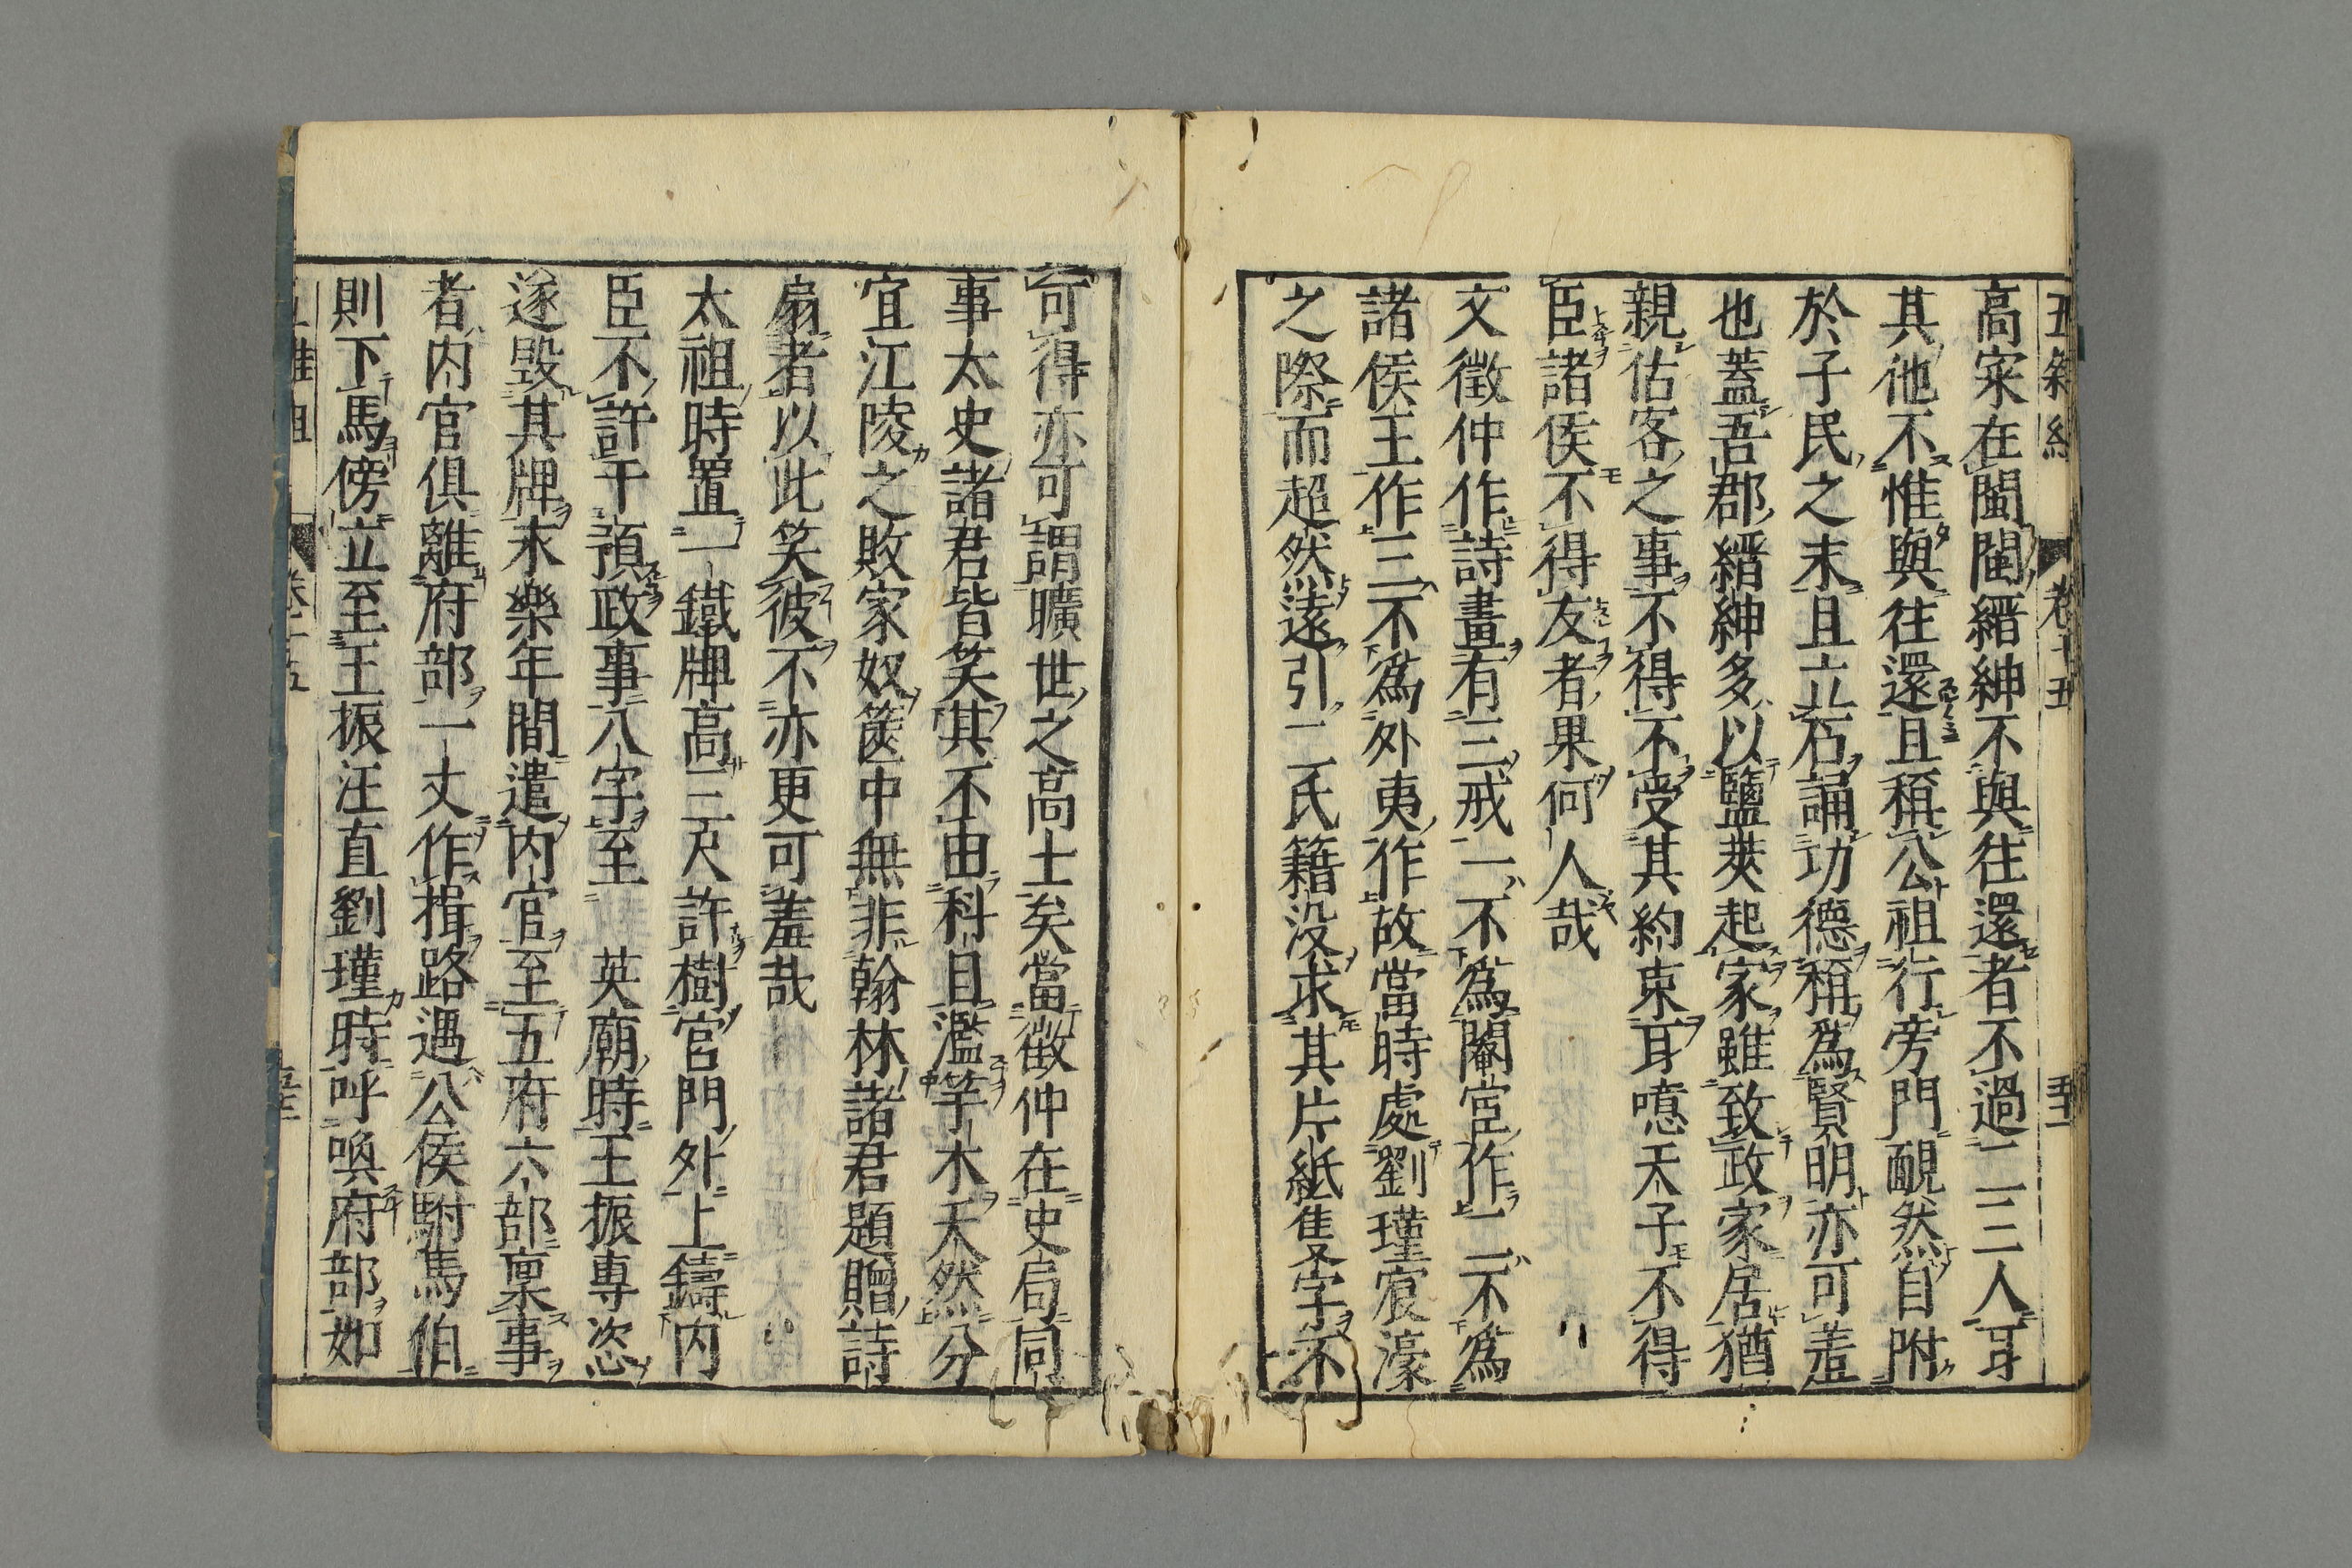 五雜組 卷十五
高寀在閩閩縉紳不與往還者不過二三人耳
其他不惟與往還且稱公祖行旁門靦然自附
於子民之末且立石誦功德稱為賢明亦可羞
也蓋吾郡縉紳多以鹽筴起家雖致政家居猶
親估客之事不得不受其約束耳噫天子不得
臣諸侯不得友者果何人哉
文徵仲作詩畫有三戒一不為閹宦作二不為
諸侯王作三不為外夷作故當時處劉瑾宸濠
之際而超然遠引二氏籍没求其片紙隻字不
可得亦可謂曠世之高士矣當徵仲在史局同
事太史諸君皆笑其不由科目濫竽木天然分
宜江陵之敗家奴篋中無非翰林諸君題贈詩
扇者以此笑彼不亦更可羞哉
太祖時置一鐵牌高三尺許樹宮門外上鑄内
臣不許干預政事八字至 英廟時王振專恣
遂毀其牌永樂年間遣内官至五府六部稟事
者内官俱離府部一丈作揖路遇公侯駙馬伯
則下馬傍立至王振汪直劉瑾時呼喚府部如
五雜組 卷十五